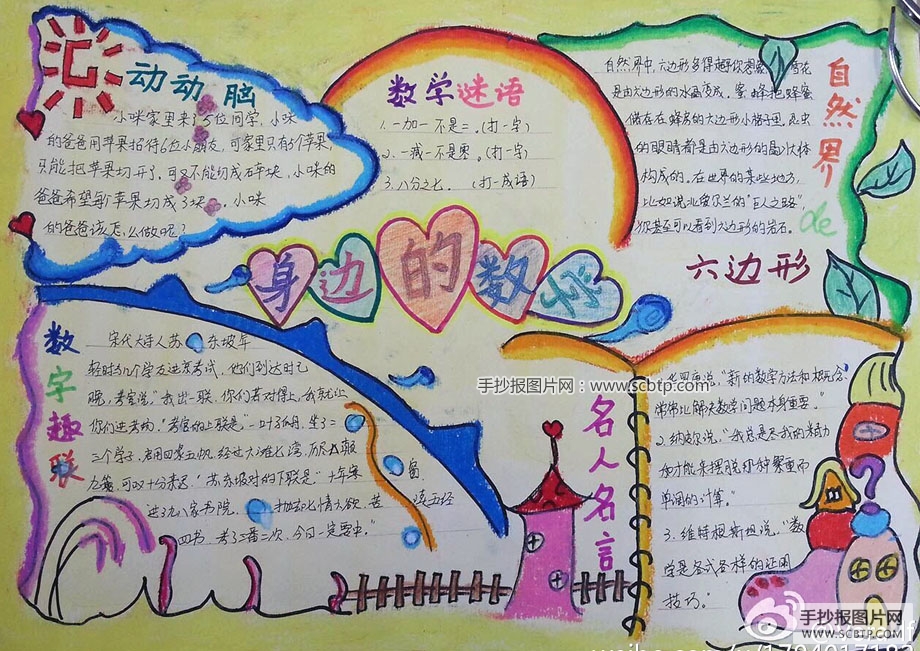 动动脑
小咪家里来了5位同学,小咪
的爸爸用苹果招待6位小朋友,可家里只有5个苹果,
只能把苹果切开了,可又不能切成碎块,小咪的
爸爸希望每个苹果切成3块,小咪
的爸爸该怎么做呢?
数学谜语
1.一加一不是二。(打一字)
2.一减一不是零。(打一字)
3.八分之七.(打一成语)
自然界
de
六边形
自然界中,六边形多得超乎你想象,雪花
是由六边形的水晶变成,蜜蜂把蜂蜜
储存在蜂巢的六边形小格子里,昆虫
的眼睛都是由六边形的晶状体
构成的,在世界的某些地方,
比如说北爱尔兰的“巨人之路”,
你甚至可以看到六边形的岩石。
身边的数学
数字趣联
宋代大诗人苏东坡年
轻时与几个学友进京考试,他们到达时已
晚,考官说:“我出一联,你们若对得上,我就让
你们进考场。”考官的上联是:“一叶孤舟,坐二
三个学子,启用四桨五帆,经过六滩七湾,历尽八颠
九簸,可叹十分来迟。”苏东坡对的下联是:“十年寒窗
进了九八家书院,抛却七情六欲,苦读五经
四书,考了三番二次,今日一定要中。”
手抄报图片网:www.scbtp.com
名人名言
“新的数学方法和概念,
常常比解决数学问题本身重要。”
2.纳皮尔说,“我总是尽我的精力
和才能来摆脱那种繁重而
单调的计算。”
3.维特根斯坦说,“数
学是各式各样的证明
技巧。”
手抄报图片网
WWW.SCBTP.COM